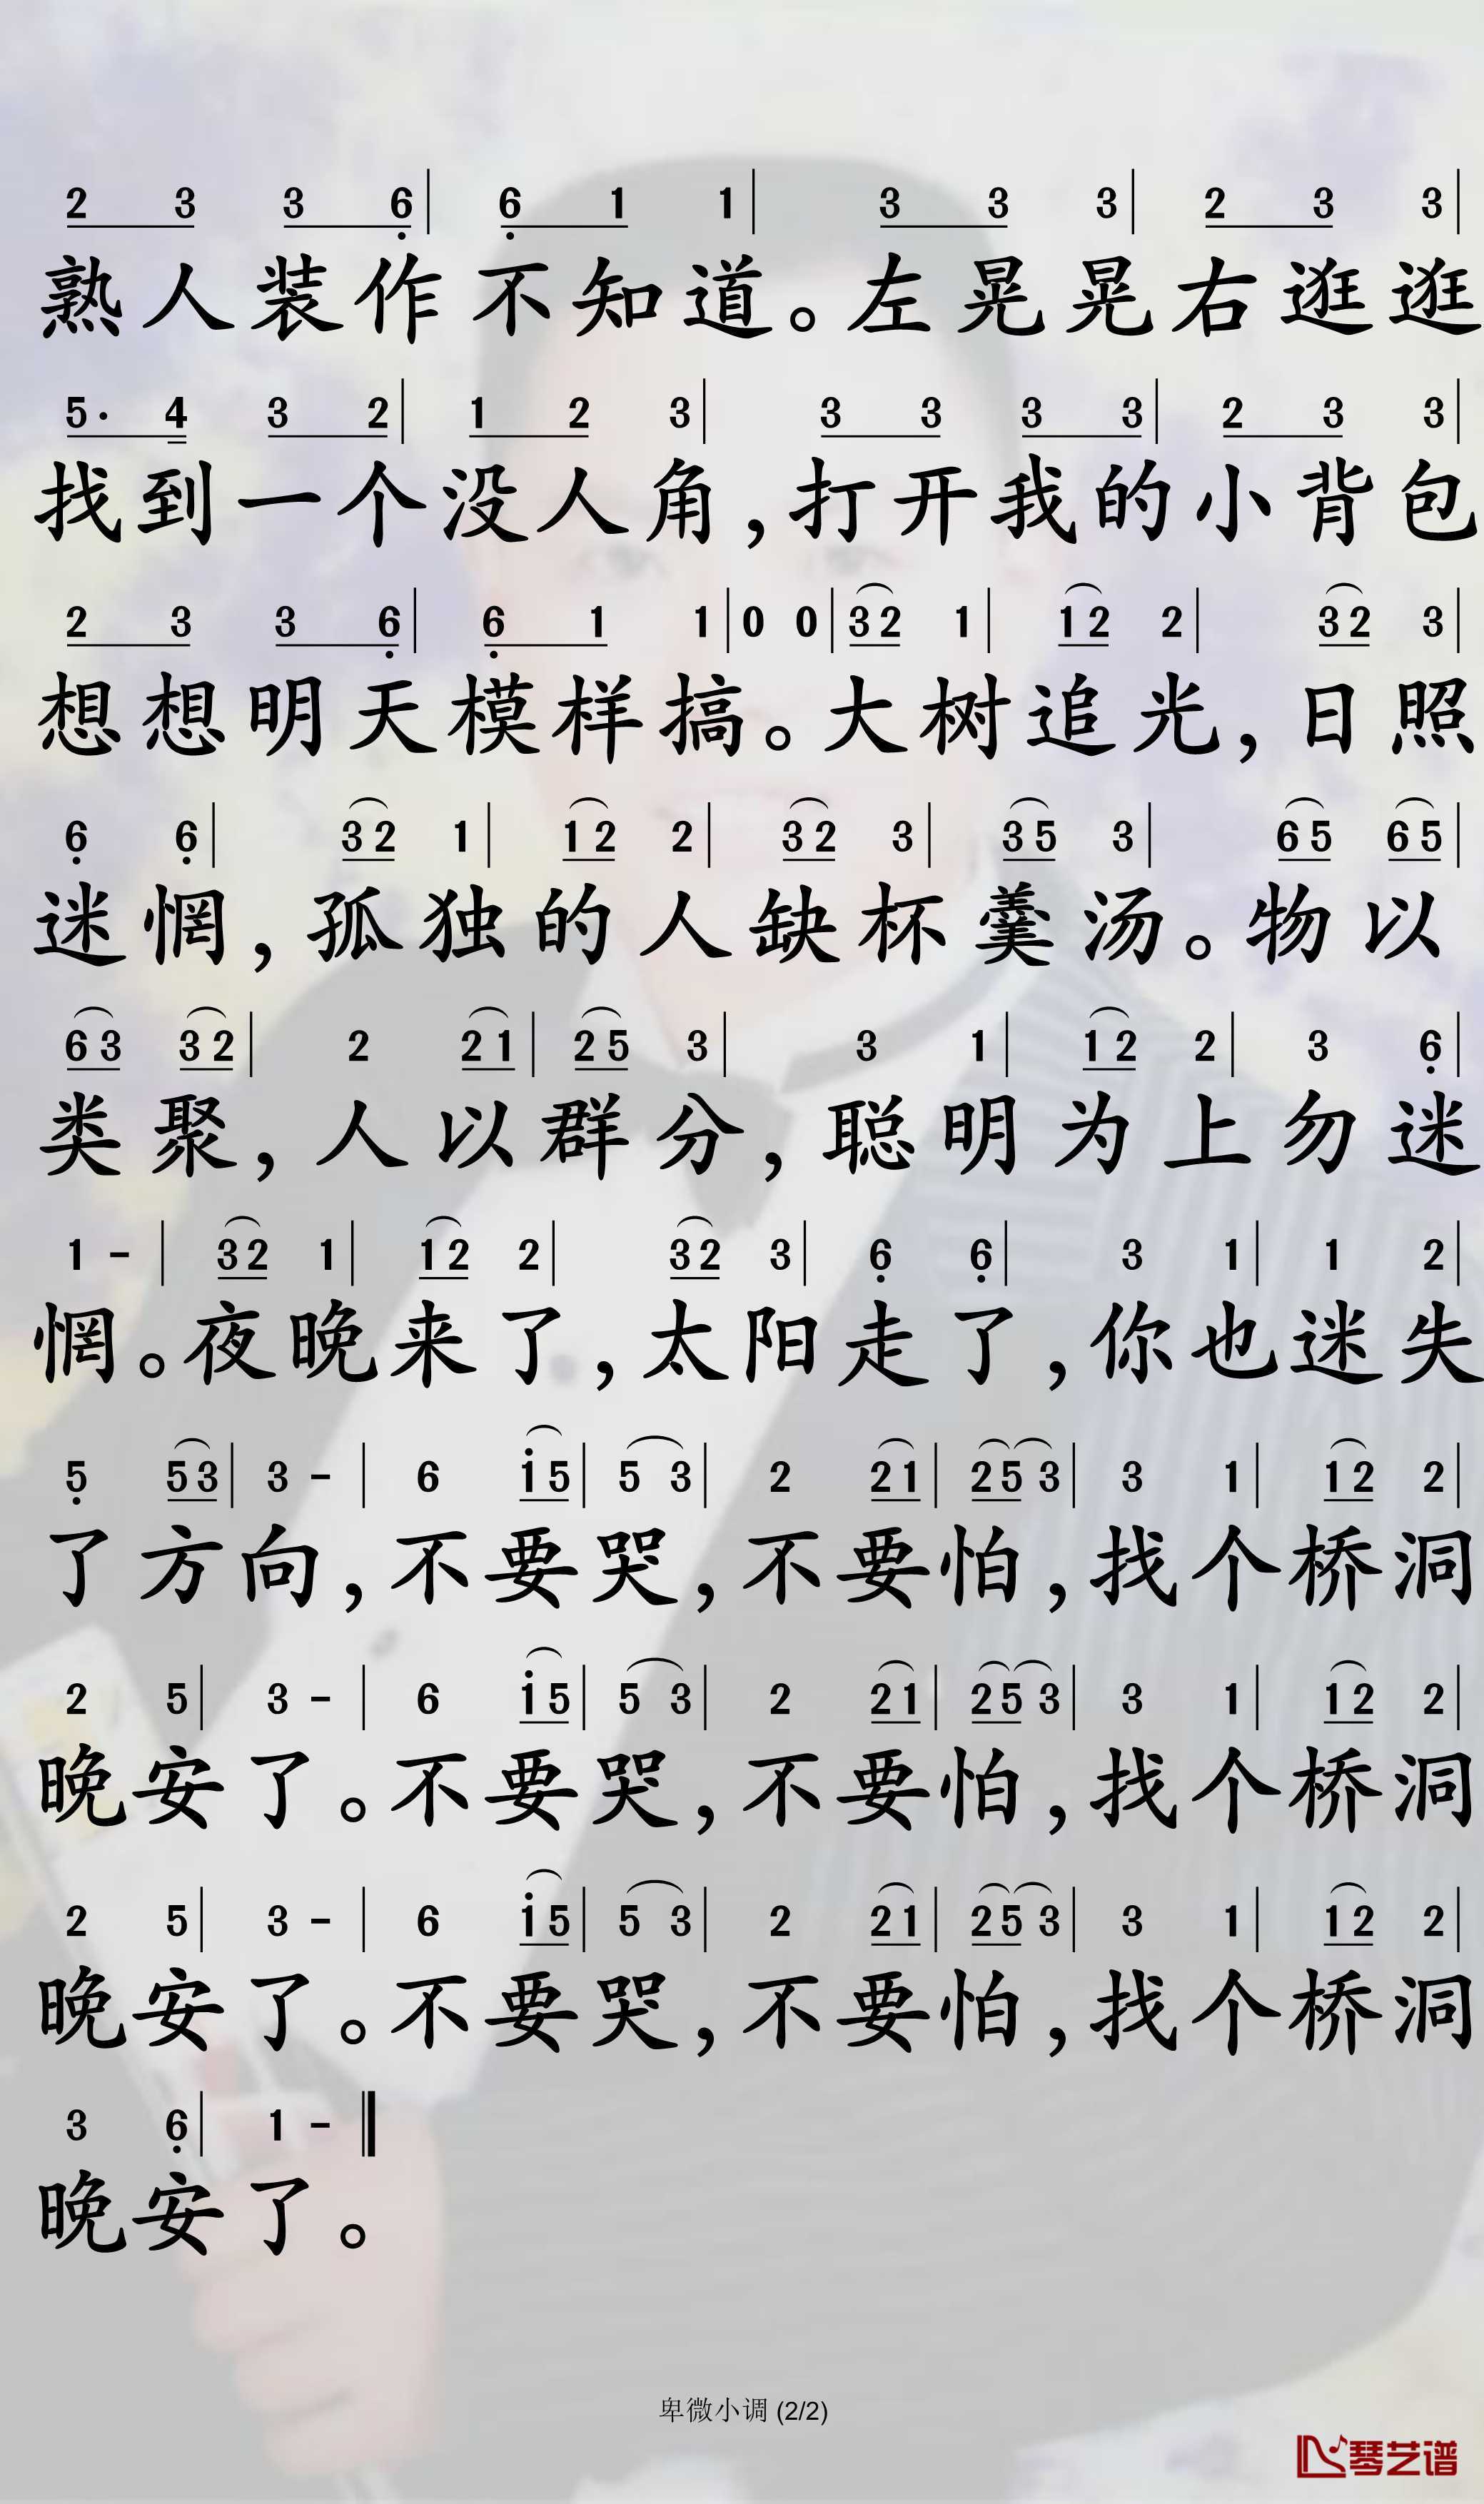 2 3 3 6 | 6 1 1 | 3 3 3 | 2 3 3 |
熟人装作不知道。左晃晃右逛逛
5· 4 3 2 | 1 2 3 | 3 3 3 3 | 2 3 3 |
找到一个没人角，打开我的小背包
2 3 3 6 | 6 1 1 | 0 0 | 3 2 1 | 1 2 2 | 3 2 3 |
想想明天模样搞。大树追光，日照
6 6 | 3 2 1 | 1 2 2 | 3 2 3 | 3 5 3 | 6 5 6 5 |
迷惘，孤独的人缺杯羹汤。物以
6 3 3 2 | 2 2 1 | 2 5 3 | 3 1 | 1 2 2 | 3 6 |
类聚，人以群分，聪明为上勿迷
1 - | 3 2 1 | 1 2 2 | 3 2 3 | 6 6 | 3 1 | 1 2 |
惘。夜晚来了，太阳走了，你也迷失
5 5 3 | 3 - | 6 i 5 | 5 3 | 2 2 1 | 2 5 3 | 3 1 | 1 2 2 |
了方向，不要哭，不要怕，找个桥洞
2 5 | 3 - | 6 i 5 | 5 3 | 2 2 1 | 2 5 3 | 3 1 | 1 2 2 |
晚安了。不要哭，不要怕，找个桥洞
2 5 | 3 - | 6 i 5 | 5 3 | 2 2 1 | 2 5 3 | 3 1 | 1 2 2 |
晚安了。不要哭，不要怕，找个桥洞
3 6 | 1 - ‖
晚安了。
卑微小调 (2/2)
琴艺谱